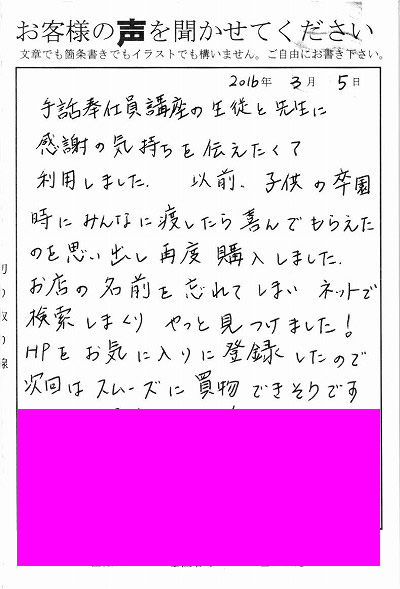 お客様の声を聞かせてください
文章でも箇条書きでもイラストでも構いません。ご自由にお書き下さい。
2016年 3月 5日
手話奉仕員講座の生徒と先生に
感謝の気持ちを伝えたくて
利用しました. 以前、子供の卒園
時にみんなに渡したら喜んでもらえた
のを思い出し再度購入しました.
お店の名前を忘れてしまい ネットで
検索しまくり やっと見つけました!
HPをお気に入りに登録したので
次回はスムーズに買物できそうです